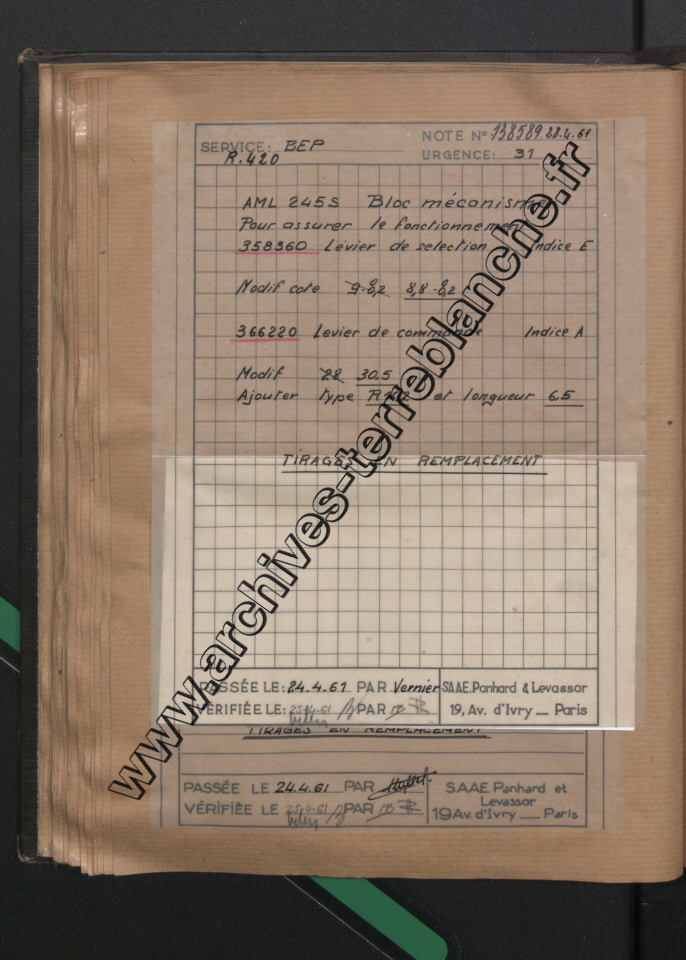 SERVICE: BEP
R.420
NOTE N° 138589 22.4.61
URGENCE: 31
AML 245S Bloc mécanisme
Pour assurer le fonctionnement
358360 Levier de selection Indice E
Modif cote 9-8,2 8,8-8,2
366220 Levier de commande Indice A
Modif 28 30.5
Ajouter type et longueur 6,5
TIRAGES EN REMPLACEMENT
PASSÉE LE: 24.4.61 PAR Vernier
VÉRIFIÉE LE: 25.4.61 PAR
S.A.A.E. Panhard & Levassor
19, Av. d'Ivry _ Paris
TIRAGES EN REMPLACEMENT
PASSÉE LE 24.4.61 PAR
VÉRIFIÉE LE 25.4.61 PAR
S.A.A.E. Panhard et
Levassor
19 Av. d'Ivry _ Paris
www.archives-terreblanche.fr